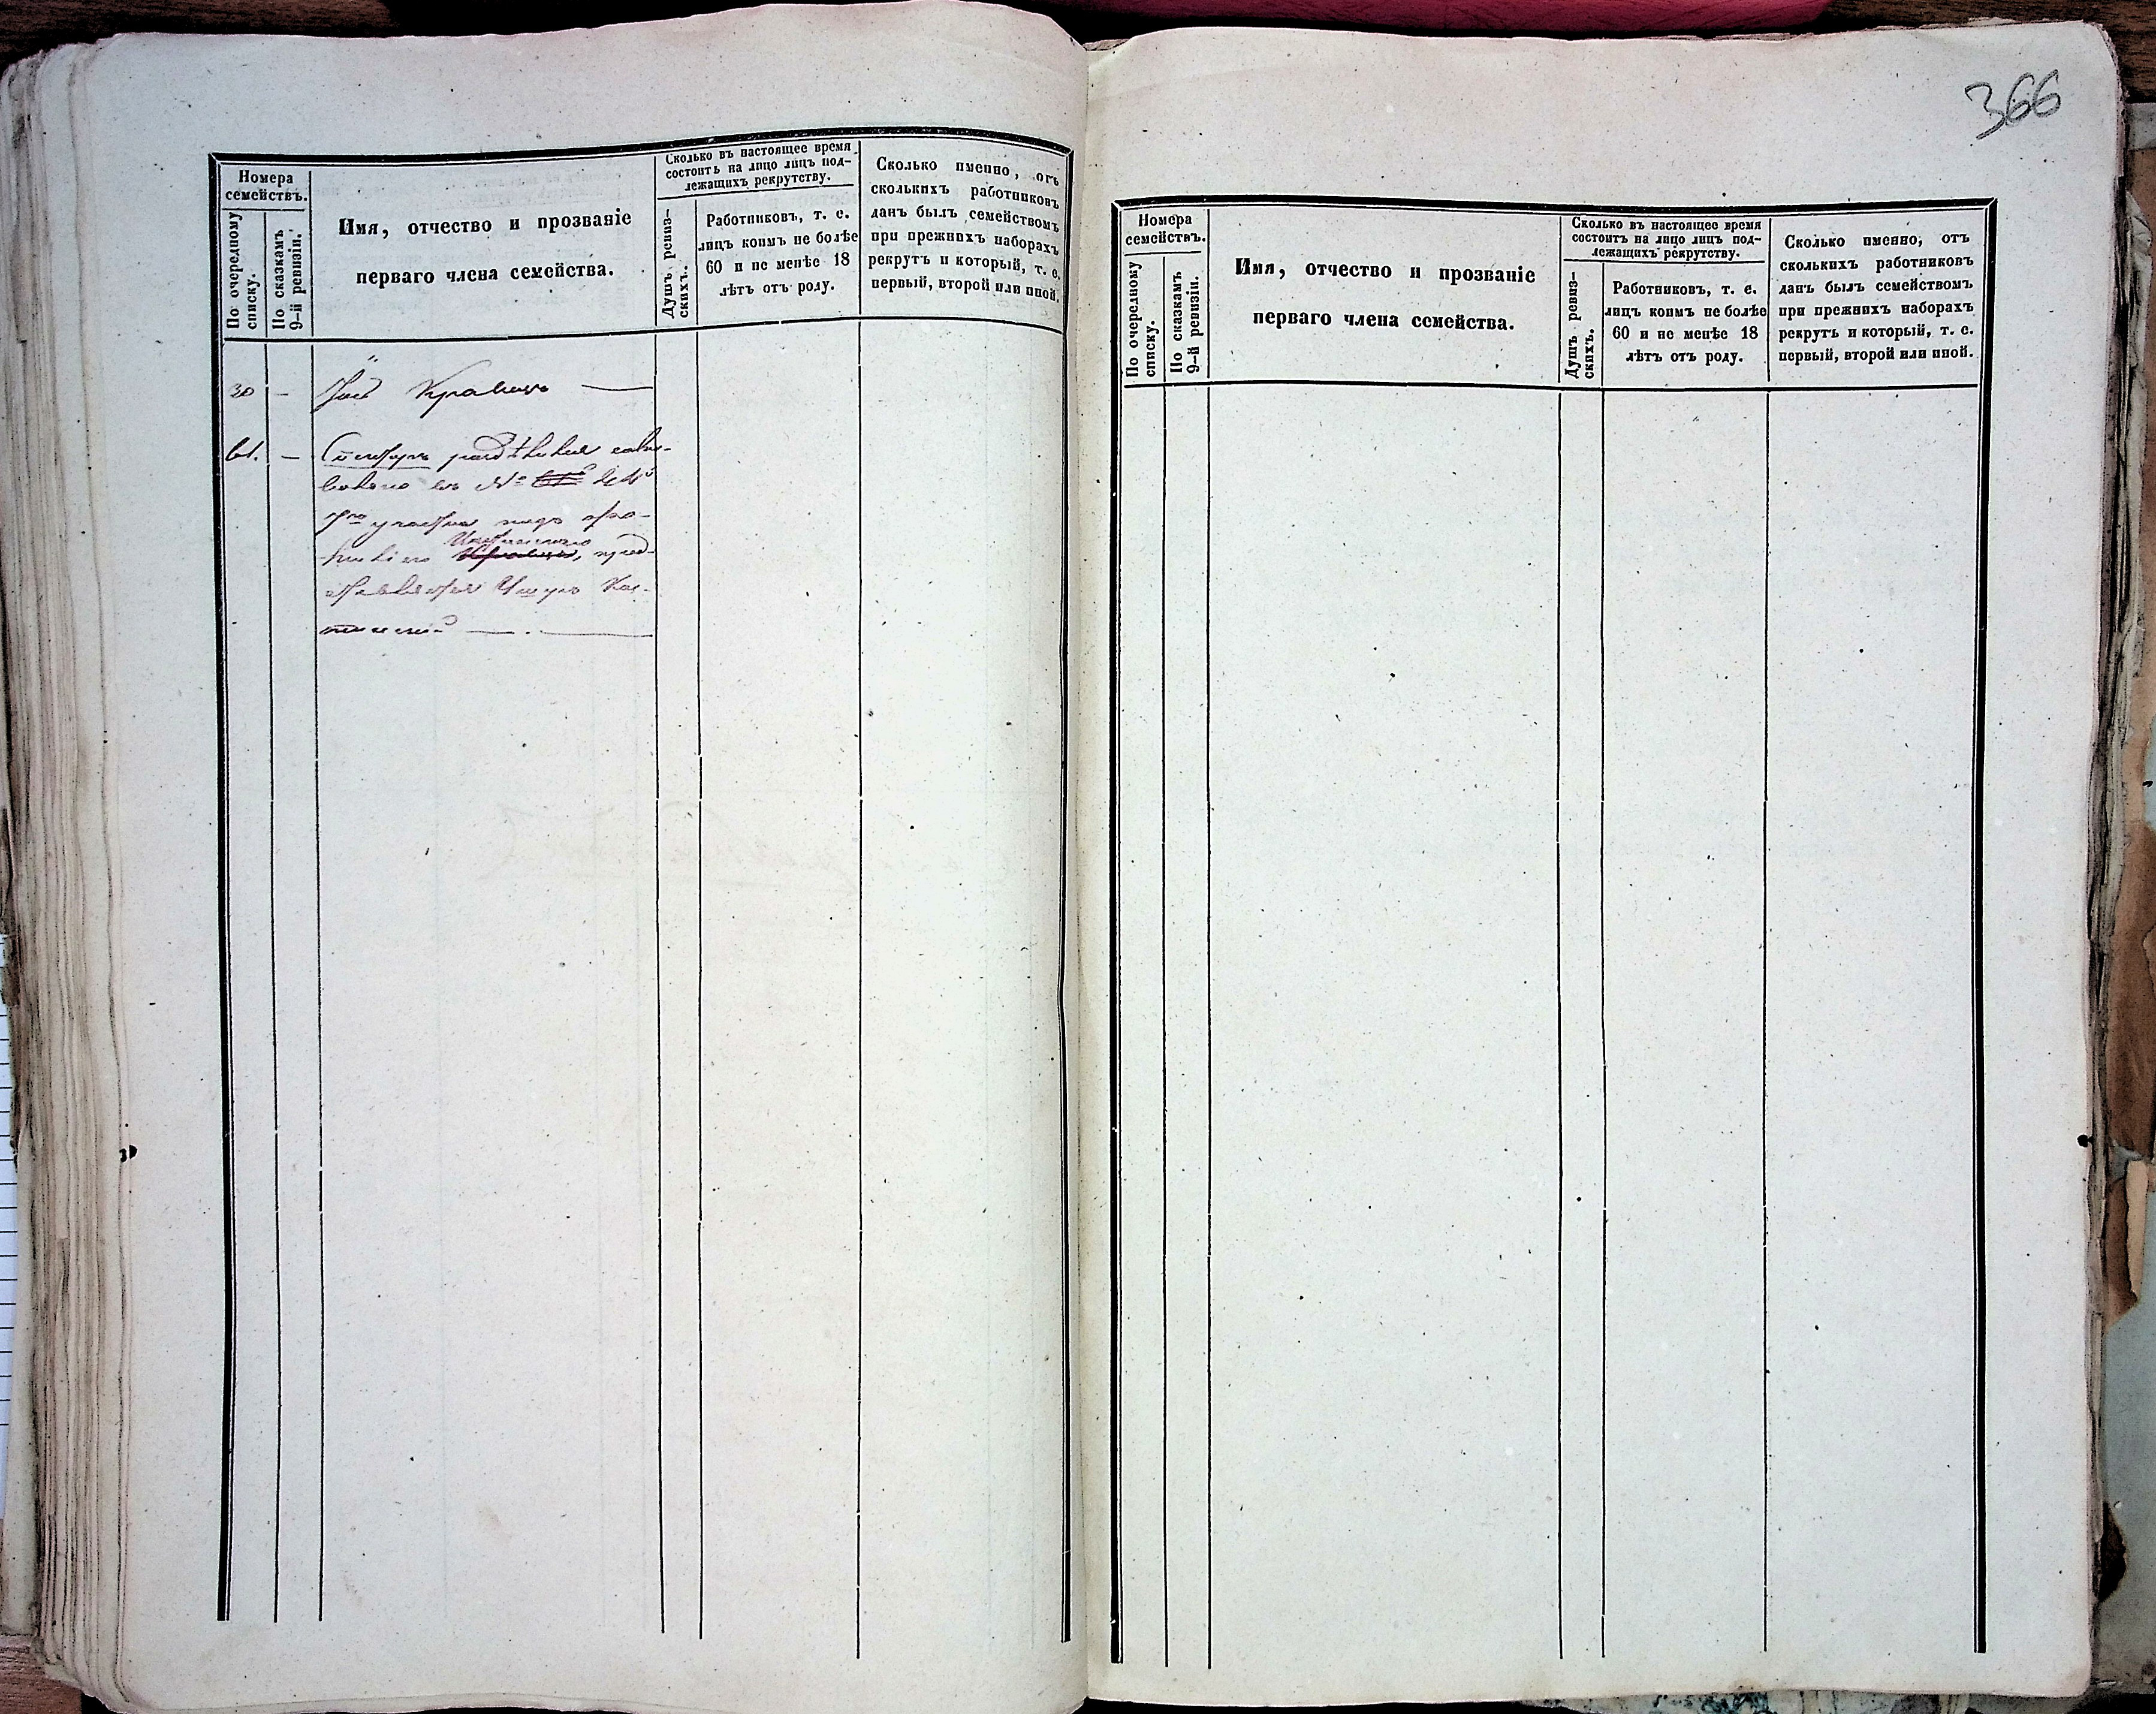 366
Номера
семействъ.
По очередному
списку.
По сказкамъ
9-й ревизіи.
Имя, отчество и прозваніе
перваго члена семейства.
Сколько въ настоящее время
состоитъ на лицо лицъ под-
лежащихъ рекрутству.
Душъ ревиз-
скихъ.
Работниковъ, т. е.
лицъ коимъ не болѣе
60 и не менѣе 18
лѣтъ отъ роду.
Сколько именно, отъ
сколькихъ работниковъ
данъ былъ семействомъ
при прежнихъ наборахъ
рекрутъ и который, т. е.
первый, второй или иной.
30 —
61. —
участка
Номера
семействъ.
По очередному
списку.
По сказкамъ
9-й ревизіи.
Имя, отчество и прозваніе
перваго члена семейства.
Сколько въ настоящее время
состоитъ на лицо лицъ под-
лежащихъ рекрутству.
Душъ ревиз-
скихъ.
Работниковъ, т. е.
лицъ коимъ не болѣе
60 и не менѣе 18
лѣтъ отъ роду.
Сколько именно, отъ
сколькихъ работниковъ
данъ былъ семействомъ
при прежнихъ наборахъ
рекрутъ и который, т. е.
первый, второй или иной.